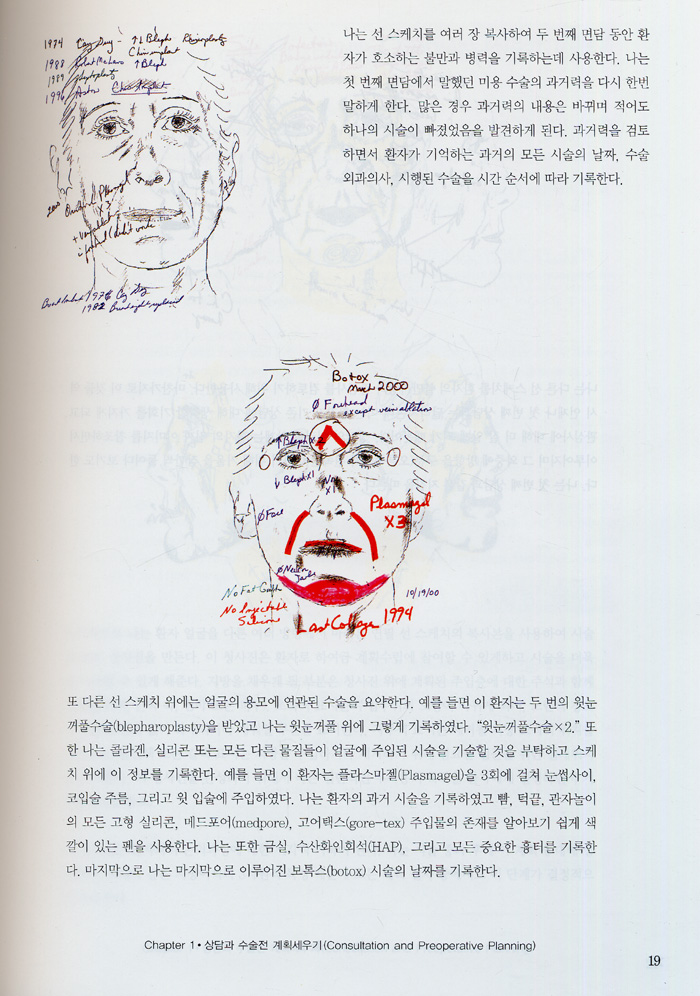 나는 선 스케치를 여러 장 복사하여 두 번째 면담 동안 환
자가 호소하는 불만과 병력을 기록하는데 사용한다. 나는
첫 번째 면담에서 말했던 미용 수술의 과거력을 다시 한번
말하게 한다. 많은 경우 과거력의 내용은 바뀌며 적어도
하나의 시술이 빠졌었음을 발견하게 된다. 과거력을 검토
하면서 환자가 기억하는 과거의 모든 시술의 날짜, 수술
외과의사, 시행된 수술을 시간 순서에 따라 기록한다.
1974
Chin implant
1988
↑ Bleph
1989
1996 Aston
Plasmagel
X 3
1976
1982
Botox
March 2000
Ø Forehead
except vein ablation
↑ Bleph X 2
↓ Bleph X 1
X 1
Ø Face
Plasmagel
X 3
No Fat Graft
No Injectable
Silicone
10/19/00
Last Collagen 1994
또 다른 선 스케치 위에는 얼굴의 용모에 연관된 수술을 요약한다. 예를 들면 이 환자는 두 번의 윗눈
꺼풀수술(blepharoplasty)을 받았고 나는 윗눈꺼풀 위에 그렇게 기록하였다. “윗눈꺼풀수술×2.” 또
한 나는 콜라겐, 실리콘 또는 모든 다른 물질들이 얼굴에 주입된 시술을 기술할 것을 부탁하고 스케
치 위에 이 정보를 기록한다. 예를 들면 이 환자는 플라스마젤(Plasmagel)을 3회에 걸쳐 눈썹사이,
코입술 주름, 그리고 윗 입술에 주입하였다. 나는 환자의 과거 시술을 기록하였고 뺨, 턱끝, 관자놀이
의 모든 고형 실리콘, 메드포어(medpore), 고어택스(gore-tex) 주입물의 존재를 알아보기 쉽게 색
깔이 있는 펜을 사용한다. 나는 또한 금실, 수산화인회석(HAP), 그리고 모든 중요한 흉터를 기록한
다. 마지막으로 나는 마지막으로 이루어진 보톡스(botox) 시술의 날짜를 기록한다.
Chapter 1 • 상담과 수술전 계획세우기(Consultation and Preoperative Planning)
19